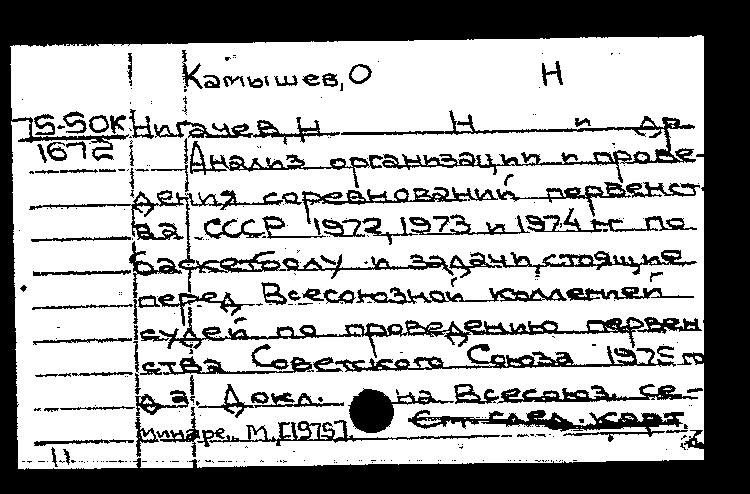 Камышев, О Н
75-50К Нигачев, Н Н и др
1672 Анализ организации и прове-
дения соревнований первенст-
ва СССР 1972, 1973 и 1974 гг по
баскетболу и задачи, стоящие
перед Всесоюзной коллегией
судей по проведению первен
ства Советского Союза 1975 го
да. Докл. на Всесоюз. се-
минаре. М. [1975].
См. след. карт
11